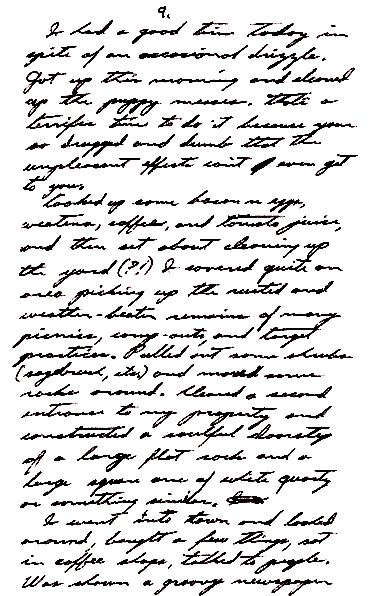 9.
I had a good time today in
spite of an occasional drizzle.
Got up this morning and cleaned
up the puppy messes. that's a
terrific time to do it because your
so drugged and dumb that the
unpleasant effects can't even get
to you.
Cooked up some bacon n eggs,
weatena, coffee, and tomato juice,
and then set about cleaning up
the yard (?!) I covered quite an
area picking up the rusted and
weather-beaten remains of many
picnics, camp-outs, and target
practices. Pulled out some shrubs
(sagebrush, etc.) and moved some
rocks around. Cleared a second
entrance to my property and
constructed a soulful doorstep
of a large flat rock and a
large square one of white quartz
or something similar.
I went into town and looked
around, bought a few things, sat
in coffee shops, talked to people.
Was shown a groovy newspaper